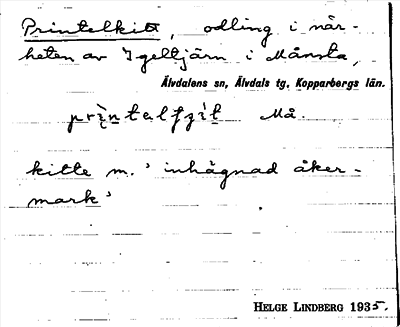 Printelkitt, odling i när-
heten av Igeltjärn i Månsta,
Älvdalens sn, Älvdals tg. Kopparbergs län.
Må.
kitte m. 'inhägnad åker-
mark'
HELGE LINDBERG 1935.